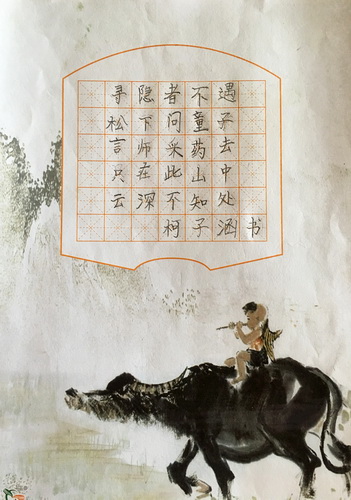 寻隐者不遇
松下问童子
言师采药去
只在此山中
云深不知处
柯子涵书